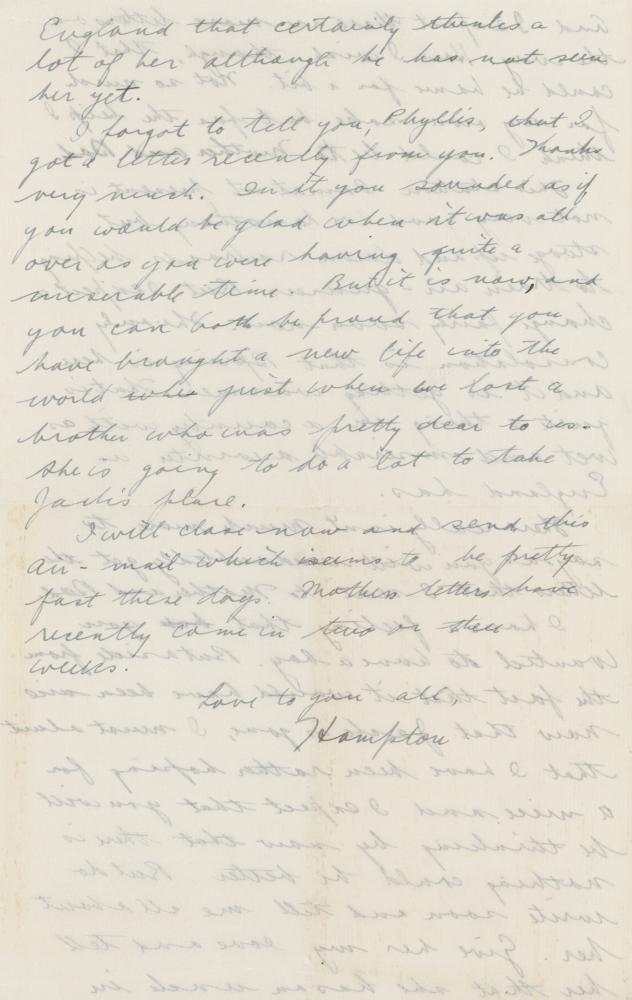 England that certainly thinks a
lot of her although he has not seen
her yet.
I forgot to tell you, Phyllis, that I
got a letter recently from you. Thanks
very much. In it you sounded as if
you would be glad when it was all
over as you were having quite a
miserable time. But it is now, and
you can both be proud that you
have brought a new life into the
world when just when we lost a
brother who was pretty dear to us.
She is going to do a lot to take
Jack's place.
I will close now and send this
air-mail which seems to be pretty
fast these days. Mothers letters have
recently come in two or three
weeks.
Love to you all,
Hampton